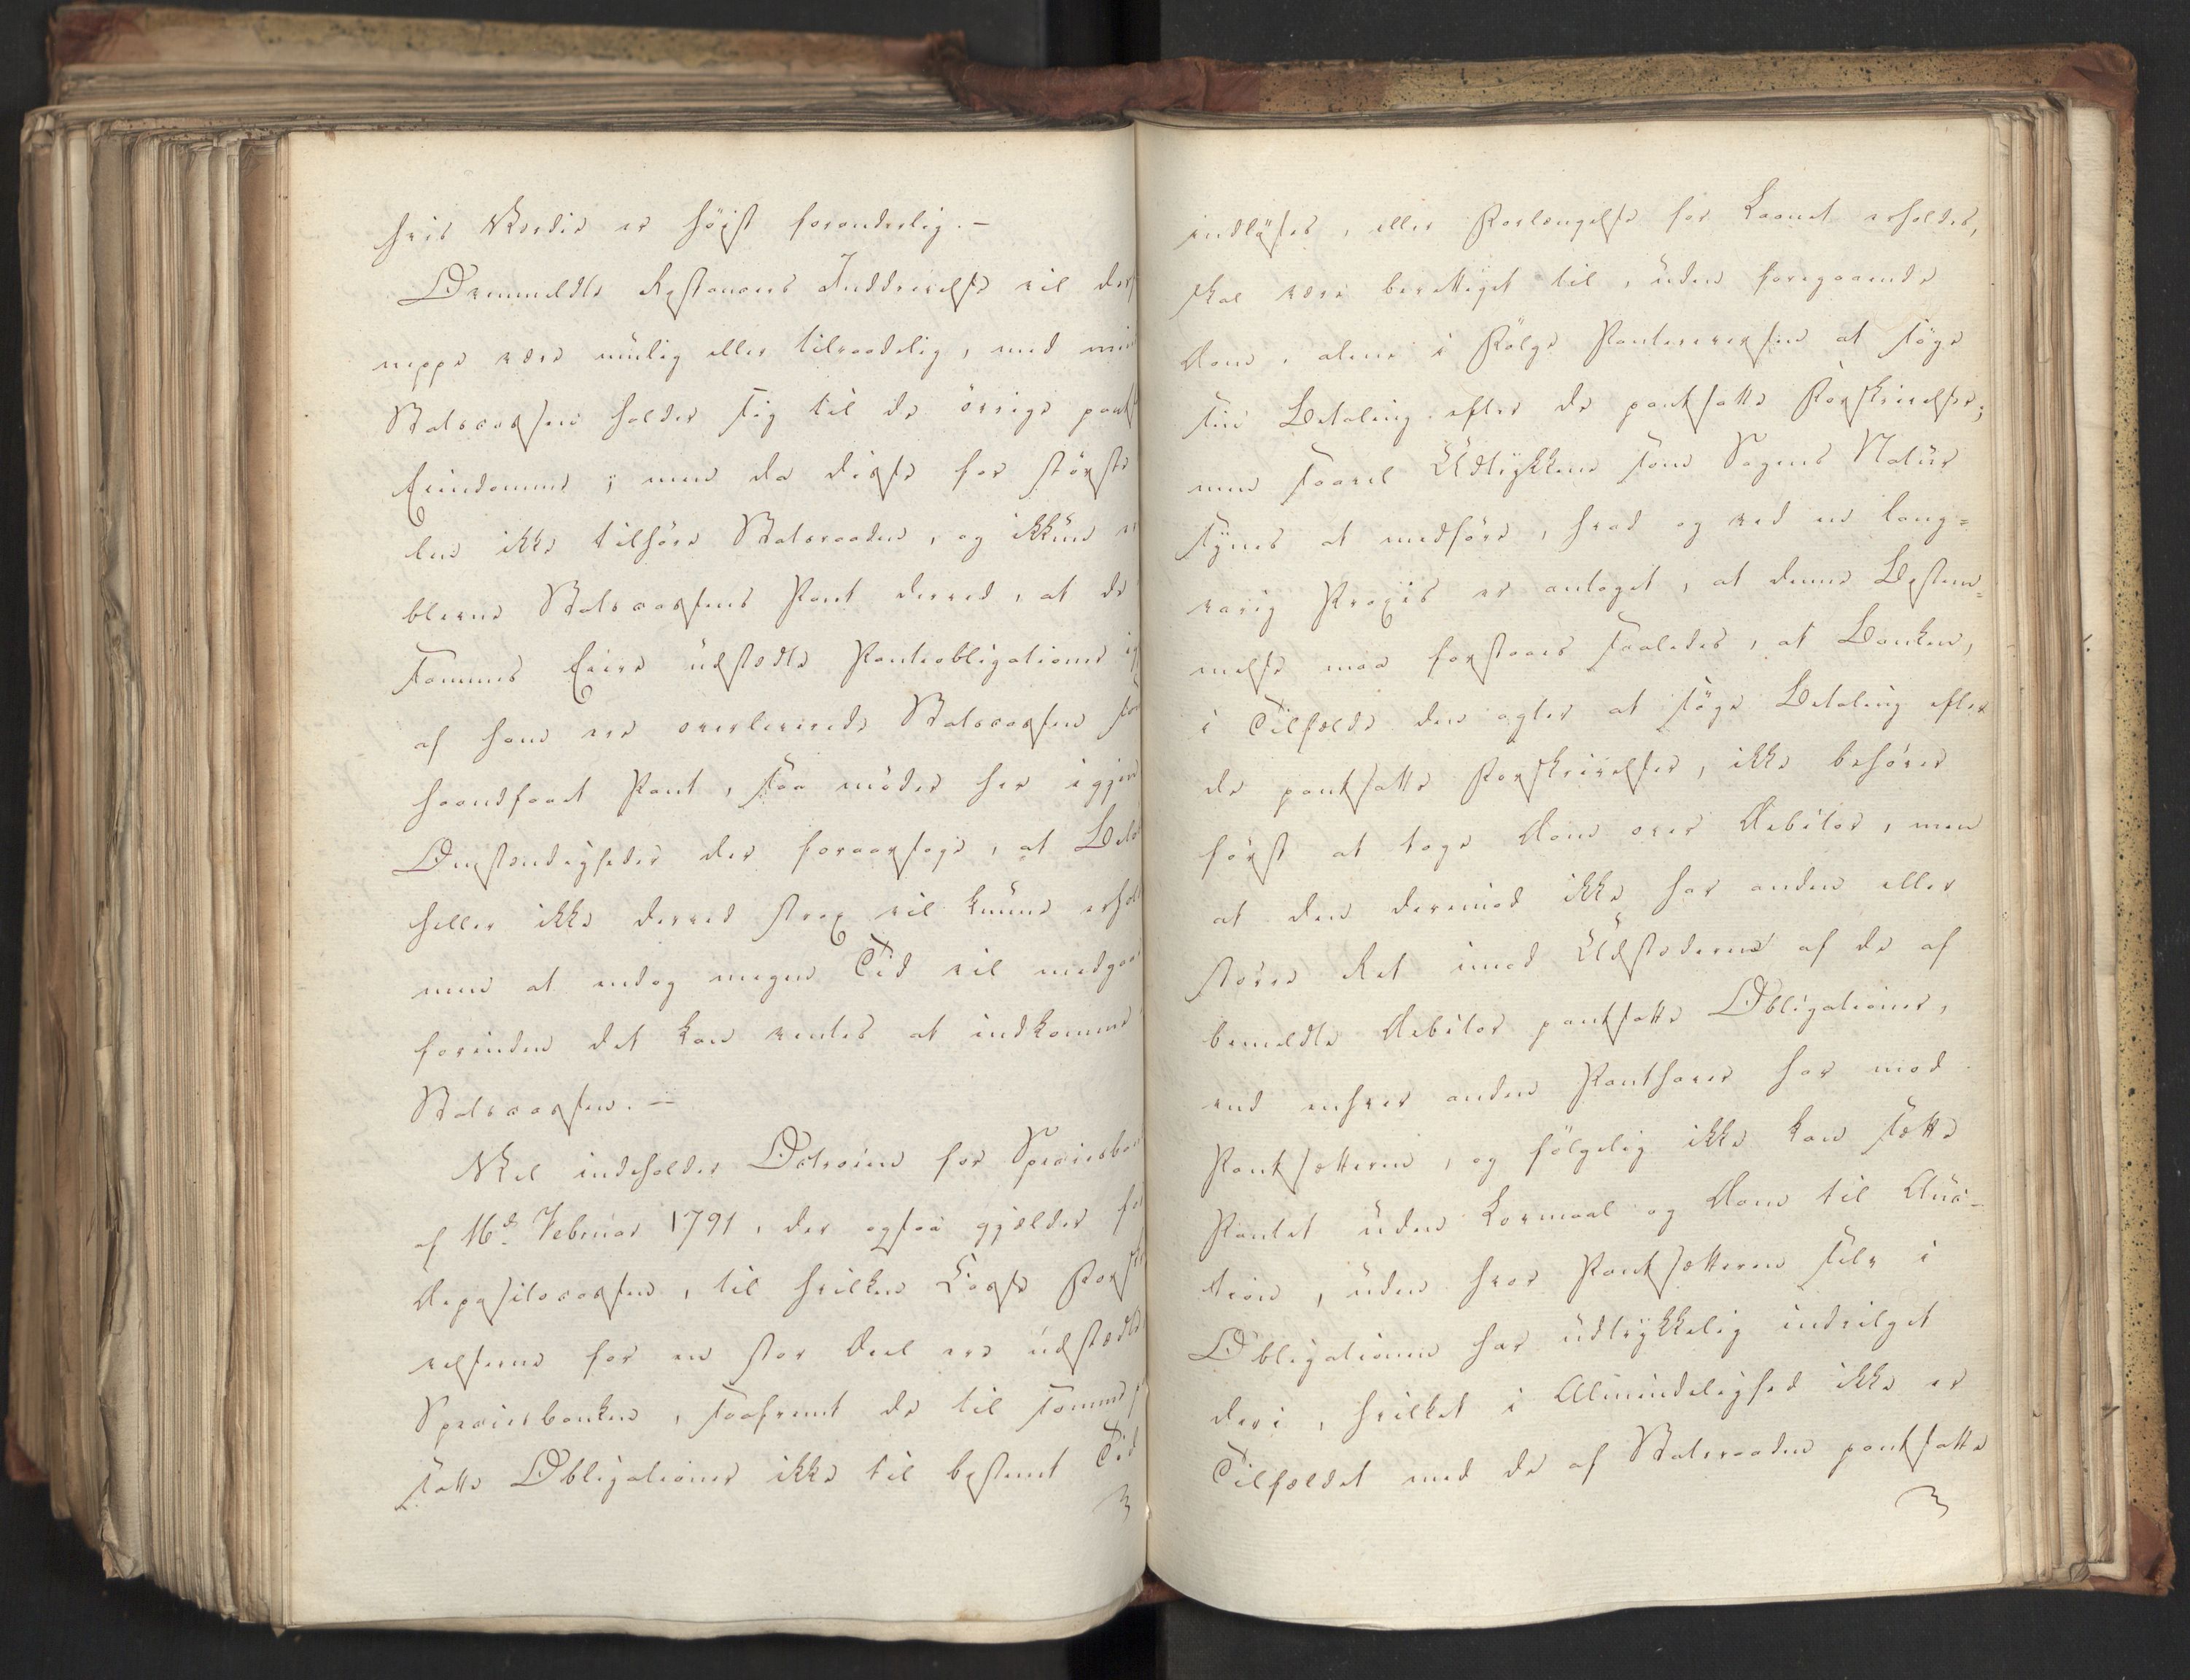 hvis Værdie er höist foranderlig. –
Ommeldte Restances Inddrivelse vil der
neppe være mulig eller tilraadelig, med min
Statscassen holder sig til de övrige pant
Eiendomme; men da disse for störste
len ikke tilhöre Statsraaden, og ikkun
bleevne Statscassens Pant derved, at de
sammes Eiere udstædte Panteobligationer
af ham ere overleverede Statscassen som
haandfaaet Pant, saa möder her igjen
Omstændigheder der foraarsage, at Beta
heller ikke derved strax vil kunne erhol
men at endog megen Tid vil medgaae
forinden det kan ventes at indkomme
Statscassen. –
Vel indeholder Octroien for Speciesban
af 16d Februar 1791, der ogsaa gjælder for
Depositocassen, til hvilken Casse Forskri
velserne for en stor Deel ere udstædte
Speciesbanken, saafremt de til samme
satte Obligationer ikke til bestemt Tid
indlöses, eller Forlængelse for Laanet erholdes,
skal være berettiget til, uden foregaaende
Dom, alene i Fölge Pantereversen at söge
sin Betaling efter de pantsatte Forskrivelser;
men saavel Udtrykkene som Sagens Natur
synes at medföre, hvad og ved en lang=
varig Praxis er antaget, at denne Bestem=
melse maa forstaaes saaledes, at Banken,
i Tilfælde den agter at söge Betaling efter
de pantsatte Forskrivelser, ikke behöver
först at tage Dom over Debitor, men
at den derimod ikke har anden eller
större Ret imod Udstæderne af de af
bemeldte Debitor pantsatte Obligationer,
end enhver anden Panthaver har mod
Pantsætteren, og fölgelig ikke kan sætte
Pantet uden Lovmaal og Dom til Auc-
tion, uden hvor Pantsætteren selv i
Obligationen har udtrykkelig indvilget
deri, hvilket i Almindelighed ikke er
Tilfældet med de af Statsraaden pantsatte